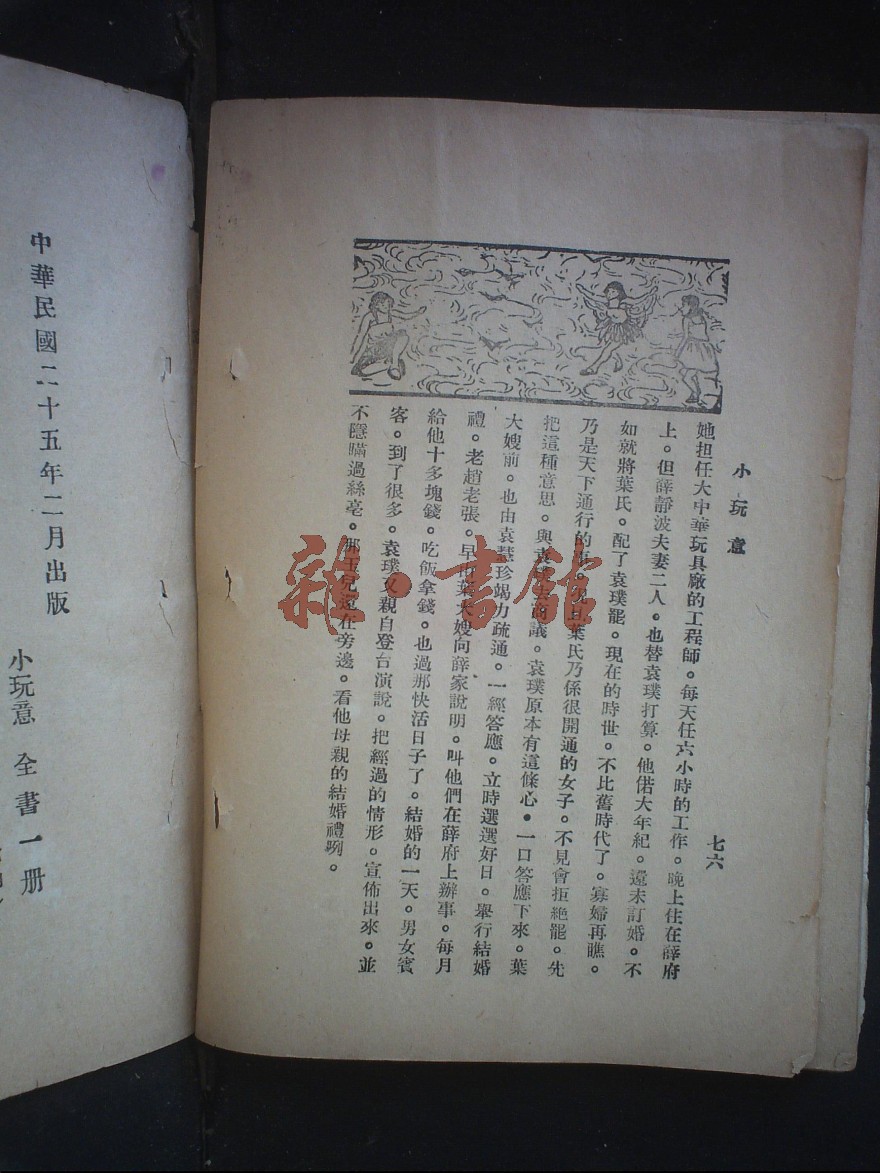 小玩意
七六
她担任大中華玩具廠的工程師。每天任六小時的工作。晚上住在薛府
上。但薛靜波夫妻二人。也替袁璞打算。他偌大年紀。還未訂婚。不
如就將葉氏。配了袁璞罷。現在的時世。不比舊時代了。寡婦再醮。
乃是天下通行的事。況且葉氏乃係很開通的女子。不見會拒絕罷。先
把這種意思。與袁璞去商議。袁璞原本有這條心。一口答應下來。葉
大嫂前。也由袁慧珍竭力疏通。一經答應。立時選選好日。舉行結婚
禮。老趙老張。早由葉大嫂向薛家說明。叫他們在薛府上辦事。每月
給他十多塊錢。吃飯拿錢。也過那快活日子了。結婚的一天。男女賓
客。到了很多。袁璞又親自登台演說。把經過的情形。宣佈出來。並
不隱瞞過絲毫。那玉兒還在旁邊。看他母親的結婚禮咧。
中華民國二十五年二月出版
小玩意 全書一册
雜·書館